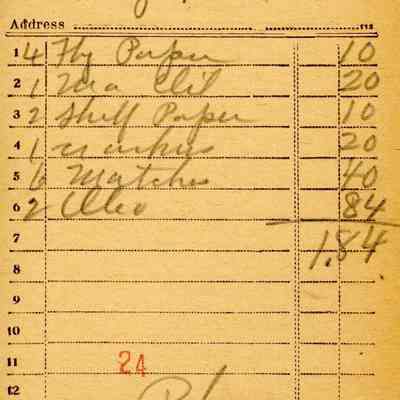 Address
1 4 Fly Paper 10
2 1 20
3 2 Shelf Paper 10
4 1 20
5 6 Matches 40
6 2 Oleo 84
7 1.84
8
9
10
11 24
12